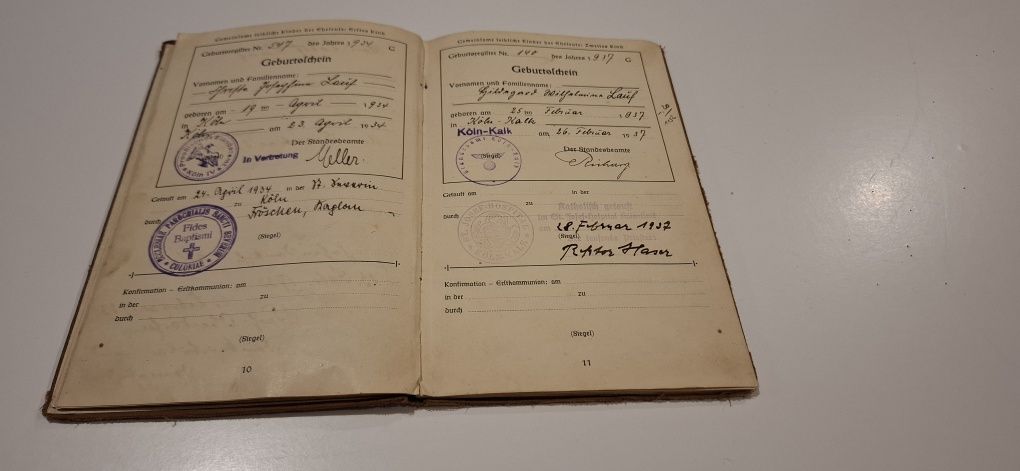 Gemeinsame leibliche Kinder der Eheleute: Erstes Kind
Geburtsregister Nr. 547 des Jahres 1934 G
Geburtsschein
Vornamen und Familienname:
Josephina Lauf
geboren am 19 ten April 1934
in Köln
Köln am 23. April 1934
Der Standesbeamte
In Vertretung
Getauft am 24. April 1934 in der St. Severin
zu Köln
durch Kaplan
ECCLESIAE PAROCHIALIS SANCTI SEVERINI
Fides
Baptismi
COLONIAE
(Siegel)
Konfirmation – Erstkommunion: am
in der zu
durch
(Siegel)
10
Gemeinsame leibliche Kinder der Eheleute: Zweites Kind
Geburtsregister Nr. 140 des Jahres 1937 G
Geburtsschein
Vornamen und Familienname:
Hildegard Wilhelmina Lauf
geboren am 25 ten Februar 1937
in Köln-Kalk
Köln-Kalk am 26. Februar 1937
Der Standesbeamte
(Siegel)
Getauft am in der
Katholisch getauft
am 28. Februar 1937
(Siegel)
Rektor
Konfirmation – Erstkommunion: am
in der zu
durch
(Siegel)
11